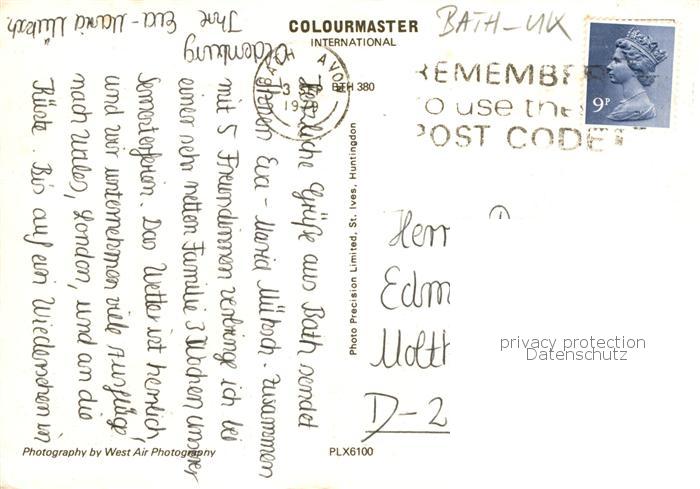 COLOURMASTER
INTERNATIONAL
BATH-UK
BTH 380
AVON
3
19
REMEMBER
to use the
POST CODE
9P
Herzliche Grüße aus Bath sendet
Ihnen Eva-Maria. Zusammen
mit 5 Freundinnen verbringe ich bei
einer sehr netten Familie 3 Wochen unserer
Semesterferien. Das Wetter ist herrlich,
und wir unternehmen viele Ausflüge,
nach Wales, London, und an die
Küste. Bis auf ein Wiedersehen in
Oldenburg
Ihre Eva-Maria
Photo Precision Limited, St. Ives, Huntingdon
Herr
Edm
Molth
D-2
privacy protection
Datenschutz
Photography by West Air Photography
PLX6100